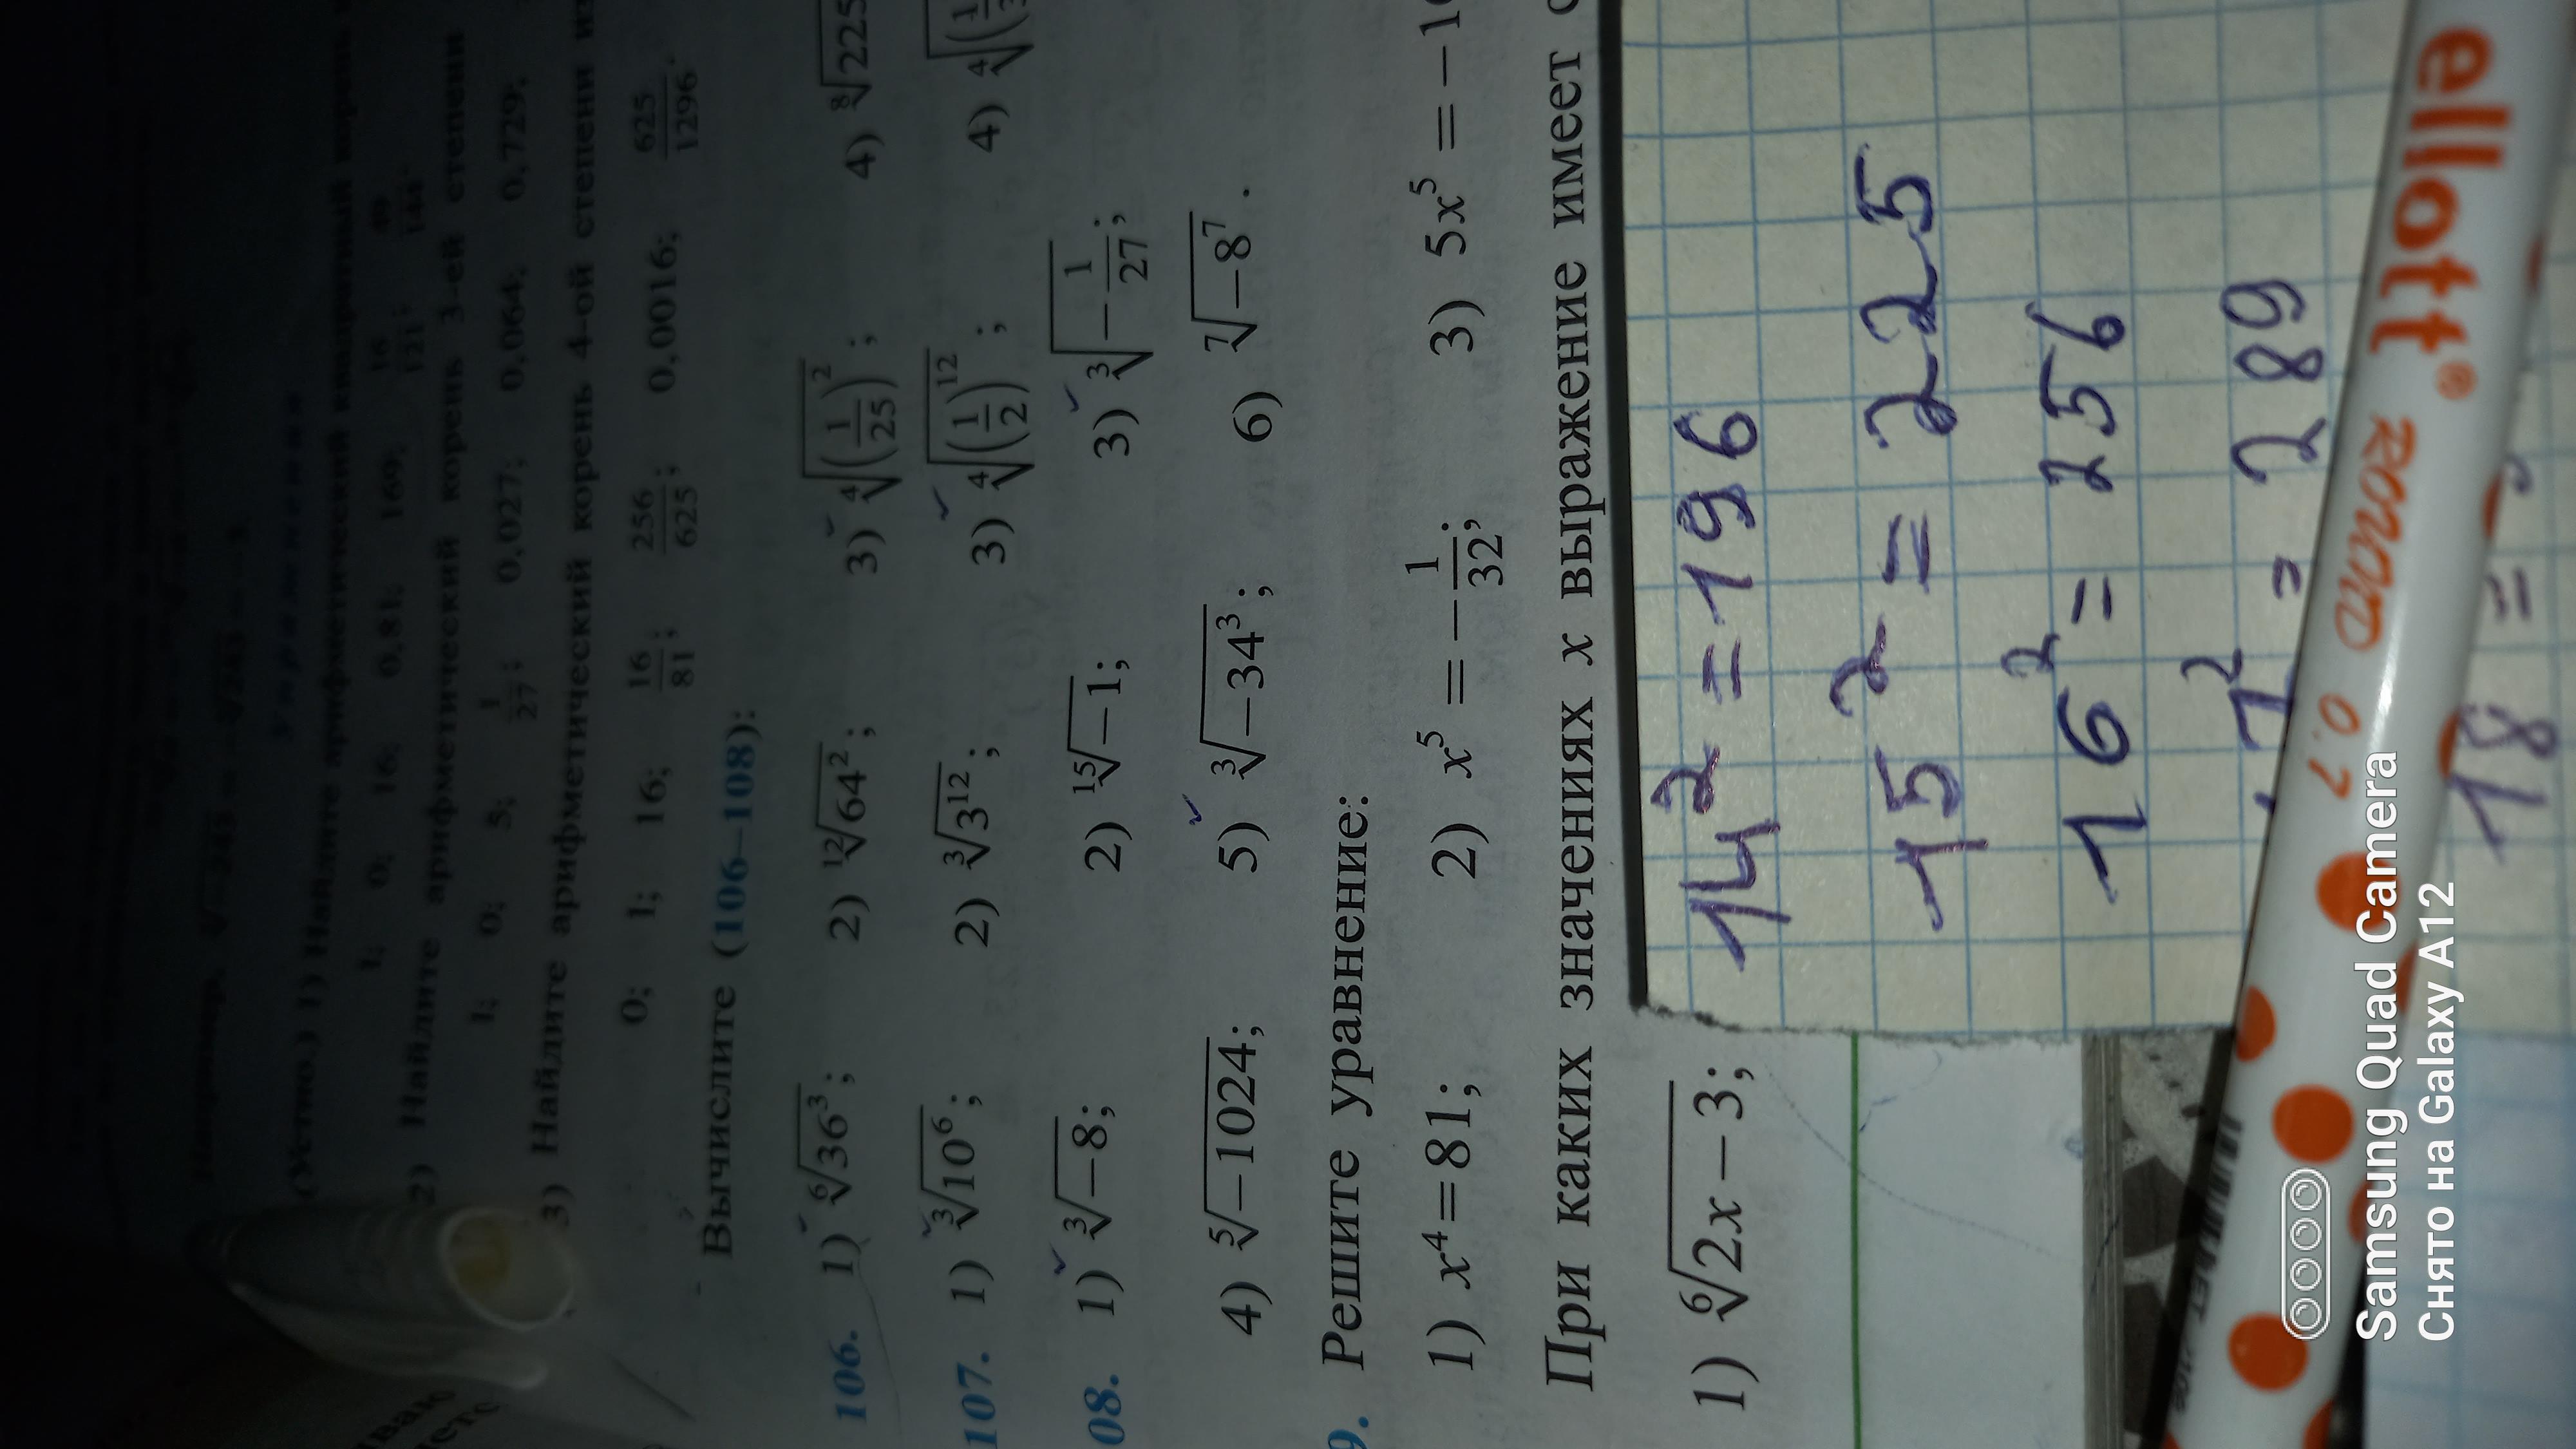 (Устно.) 1) Найдите арифметический квадратный корень
1; 0; 16; 0,81; 169; 16/121; 49/144.
2) Найдите арифметический корень 3-ей степени
1; 0; 5; 1/27; 0,027; 0,064; 0,729;
3) Найдите арифметический корень 4-ой степени из
0; 1; 16; 16/81; 256/625; 0,0016; 625/1296.
Вычислите (106–108):
106. 1) ⁶√36³; 2) ¹²√64²; 3) ⁴√(1/25)²; 4) ⁸√225
107. 1) ³√10⁶; 2) ³√3¹²; 3) ⁴√(1/2)¹²; 4) ⁴√(1/3
08. 1) ³√−8; 2) ¹⁵√−1; 3) ³√−1/27;
4) ⁵√−1024; 5) ³√−34³; 6) ⁷√−8⁷.
9. Решите уравнение:
1) x⁴=81; 2) x⁵ = −1/32; 3) 5x⁵ = −1
При каких значениях x выражение имеет с
1) ⁶√2x−3;
14² = 196
15² = 225
16² = 256
17² = 289
18 =
ellott® RONDO 0.7
Samsung Quad Camera
Снято на Galaxy A12